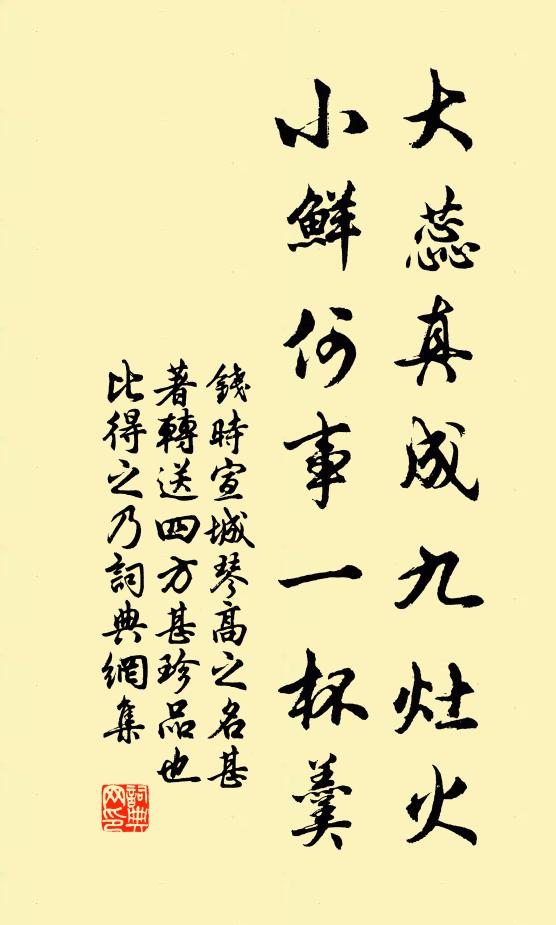 大蕊真成九灶火
小鮮何事一杯羹
錢時宣城琴高之名甚
著轉送四方甚珍品也
比得之乃詞典網集
詞典網印